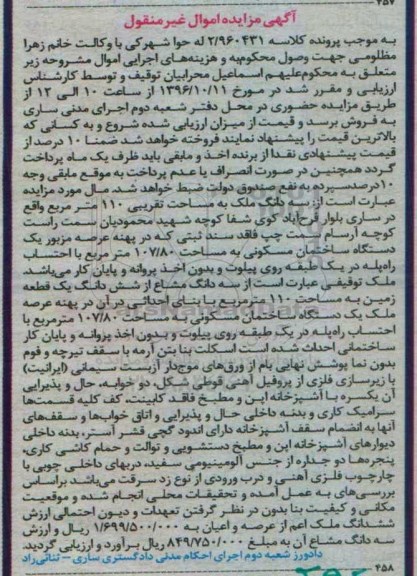 ۴۵۷
آگهی مزایده اموال غیر منقول
به موجب پرونده کلاسه ۲/۹۶۰۴۳۱ له حوا شهرکی با وکالت خانم زهرا
مظلومی جهت وصول محکوم‌به و هزینه‌های اجرایی اموال مشروحه زیر
متعلق به محکوم‌علیهم اسماعیل محرابیان توقیف و توسط کارشناس
ارزیابی و مقرر شد در مورخ ۱۳۹۶/۱۰/۱۱ از ساعت ۱۰ الی ۱۲ از
طریق مزایده حضوری در محل دفتر شعبه دوم اجرای مدنی ساری
به فروش برسد و قیمت از میزان ارزیابی شده شروع و به کسانی که
بالاترین قیمت را پیشنهاد نمایند فروخته خواهد شد ضمنا ۱۰ درصد از
قیمت پیشنهادی نقدا از برنده اخذ و مابقی باید ظرف یک ماه پرداخت
گردد همچنین در صورت انصراف یا عدم پرداخت به موقع مابقی وجه
۱۰درصد سپرده به نفع صندوق دولت ضبط خواهد شد. مال مورد مزایده
عبارت است از: سه دانگ ملک به مساحت تقریبی ۱۱۰ متر مربع واقع
در ساری بلوار فرح‌آباد کوی شفا کوچه شهید محمودیان سمت راست
کوچه آرسام سمت چپ فاقد سند ثبتی که در پهنه عرصه مزبور یک
دستگاه ساختمان مسکونی به مساحت ۱۰۷/۸۰ متر مربع با احتساب
راه‌پله در یک طبقه روی پیلوت و بدون اخذ پروانه و پایان کار می‌باشد.
ملک توقیفی عبارت است از سه دانگ مشاع از شش دانگ یک قطعه
زمین به مساحت ۱۱۰ مترمربع با بنای احداثی در آن در پهنه عرصه
ملک یک دستگاه ساختمان مسکونی به مساحت ۱۰۷/۸۰ مترمربع با
احتساب راه‌پله در یک طبقه روی پیلوت و بدون اخذ پروانه و پایان کار
ساختمانی احداث شده است اسکلت بنا بتن آرمه با سقف تیرچه و فوم
بدون نما پوشش نهایی بام از ورق‌های موج‌دار آزبست سیمانی (ایرانیت)
با زیرسازی فلزی از پروفیل آهنی قوطی شکل، دو خوابه، حال و پذیرایی
آن یکسره با آشپزخانه اپن و مطبخ فاقد کابینت، کف کلیه قسمت‌ها
سرامیک کاری و بدنه داخلی حال و پذیرایی و اتاق خواب‌ها و سقف‌های
آنها به انضمام سقف آشپزخانه دارای اندود گچی قشر آستر، بدنه داخلی
دیوارهای آشپزخانه اپن و مطبخ دستشویی و توالت و حمام کاشی کاری،
پنجره‌ها دو جداره از جنس آلومینیومی سفید، دربهای داخلی چوبی با
چارچوب فلزی آهنی و درب ورودی از نوع ضد سرقت می‌باشد براساس
بررسی‌های به عمل آمده و تحقیقات محلی انجام شده و موقعیت
مکانی و کیفیت بنا بدون در نظر گرفتن تعهدات و دیون احتمالی ارزش
ششدانگ ملک اعم از عرصه و اعیان به ۱/۶۹۹/۵۰۰/۰۰۰ ریال و ارزش
سه دانگ مشاع آن به مبلغ ۸۴۹/۷۵۰/۰۰۰ ریال برآورد و ارزیابی گردید.
دادورز شعبه دوم اجرای احکام مدنی دادگستری ساری – ثنائی‌راد
۴۵۸